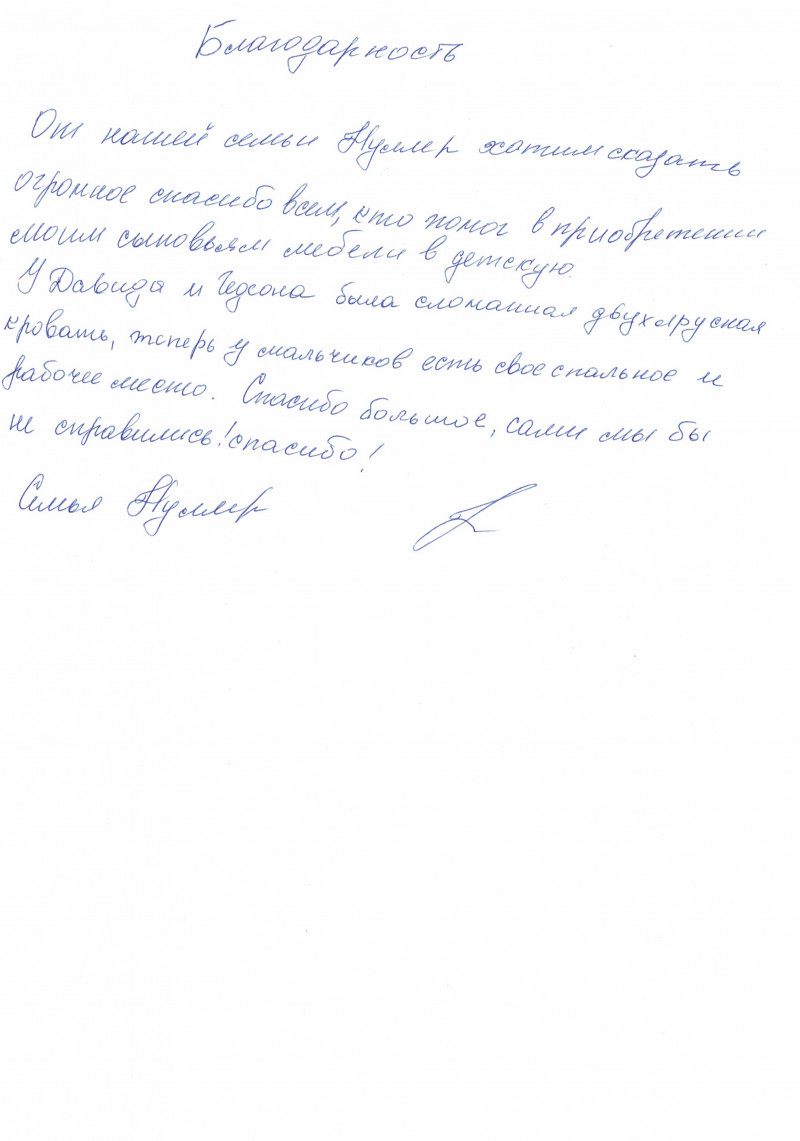 Благодарность
От нашей семьи Нуллер хотим сказать
огромное спасибо всем, кто помог в приобретении
моим сыновьям мебели в детскую.
У Давида и была сломанная двухярусная
кровать, теперь у мальчиков есть свое спальное и
рабочее место. Спасибо большое, сами мы бы
не справились! спасибо!
Семья Нуллер